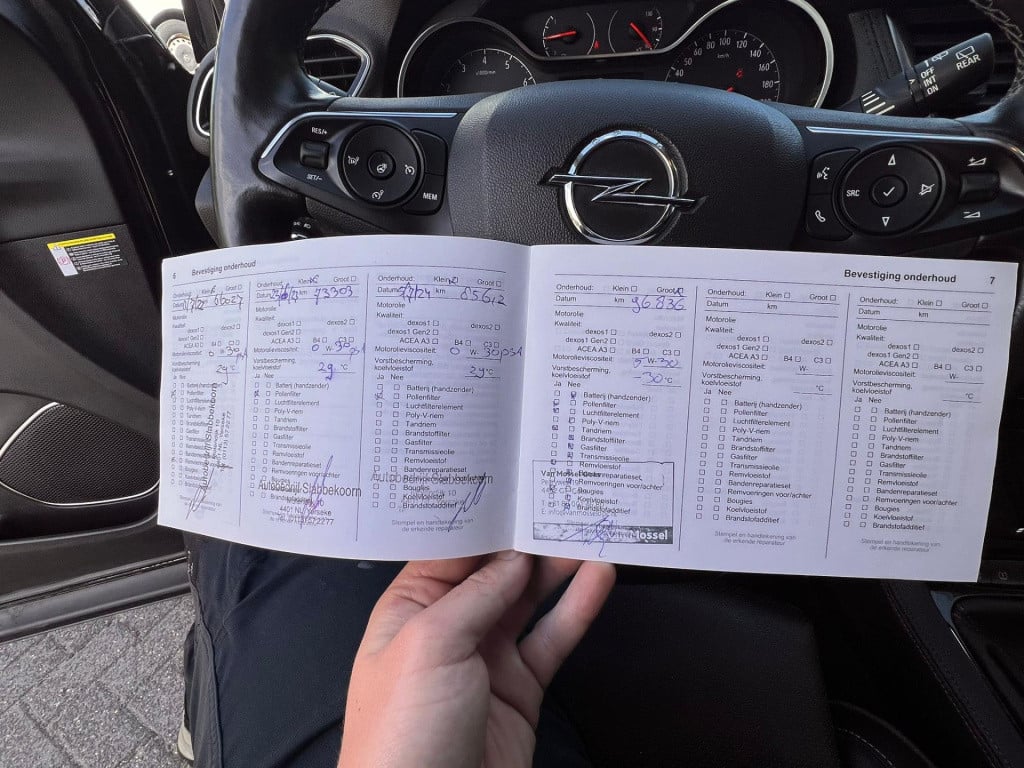 OFF
INT
ON
REAR
RES/+
SET/-
MEM
SRC
x1000/min
3 4 5 6
40 60 80 100 120 140 160 180
km/h
6 Bevestiging onderhoud
Onderhoud: Klein Groot
Datum km
Motorolie
Kwaliteit:
dexos1 dexos2
dexos1 Gen2
ACEA A3 B4 C3
Motorolieviscositeit: 0 W- 30
Vorstbescherming,
koelvloeistof 29 °C
Ja Nee
Batterij (handzender)
Pollenfilter
Luchtfilterelement
Poly-V-riem
Tandriem
Brandstoffilter
Gasfilter
Transmissieolie
Remvloeistof
Autobedrijf Slabbekoorn
Onderhoud: Klein Groot
Datum km 73303
Motorolie
Kwaliteit:
dexos1 dexos2
dexos1 Gen2
ACEA A3 B4 C3
Motorolieviscositeit: 0 W- 30
Vorstbescherming,
koelvloeistof 29 °C
Ja Nee
Batterij (handzender)
Pollenfilter
Luchtfilterelement
Poly-V-riem
Tandriem
Brandstoffilter
Gasfilter
Transmissieolie
Remvloeistof
Bandenreparatieset
Autobedrijf Slabbekoorn
4401 NL Yerseke
Stempel en handtekening van
Onderhoud: Klein Groot
Datum km 85612
Motorolie
Kwaliteit:
dexos1 dexos2
dexos1 Gen2
ACEA A3 B4 C3
Motorolieviscositeit: 0 W- 30
Vorstbescherming,
koelvloeistof 29 °C
Ja Nee
Batterij (handzender)
Pollenfilter
Luchtfilterelement
Poly-V-riem
Tandriem
Brandstoffilter
Gasfilter
Transmissieolie
Remvloeistof
Bandenreparatieset
Autobedrijf Slabbekoorn
Bougies
Koelvloeistof
Brandstofadditief
Stempel en handtekening van
Bevestiging onderhoud 7
Onderhoud: Klein Groot
Datum km 96836
Motorolie
Kwaliteit:
dexos1 dexos2
dexos1 Gen2
ACEA A3 B4 C3
Motorolieviscositeit: 5 W- 30
Vorstbescherming,
koelvloeistof -30 °C
Ja Nee
Batterij (handzender)
Pollenfilter
Luchtfilterelement
Poly-V-riem
Tandriem
Brandstoffilter
Gasfilter
Transmissieolie
Remvloeistof
Van Mossel
Bandenreparatieset
Remvoeringen voor/achter
Bougies
Koelvloeistof
Brandstofadditief
Mossel
Onderhoud: Klein Groot
Datum km
Motorolie
Kwaliteit:
dexos1 dexos2
dexos1 Gen2
ACEA A3 B4 C3
Motorolieviscositeit: W-
Vorstbescherming,
koelvloeistof °C
Ja Nee
Batterij (handzender)
Pollenfilter
Luchtfilterelement
Poly-V-riem
Tandriem
Brandstoffilter
Gasfilter
Transmissieolie
Remvloeistof
Bandenreparatieset
Remvoeringen voor/achter
Bougies
Koelvloeistof
Brandstofadditief
Stempel en handtekening van
de erkende reparateur
Onderhoud: Klein Groot
Datum km
Motorolie
Kwaliteit:
dexos1 dexos2
dexos1 Gen2
ACEA A3 B4 C3
Motorolieviscositeit: W-
Vorstbescherming,
koelvloeistof °C
Ja Nee
Batterij (handzender)
Pollenfilter
Luchtfilterelement
Poly-V-riem
Tandriem
Brandstoffilter
Gasfilter
Transmissieolie
Remvloeistof
Bandenreparatieset
Remvoeringen voor/achter
Bougies
Koelvloeistof
Brandstofadditief
Stempel en handtekening van
de erkende reparateur